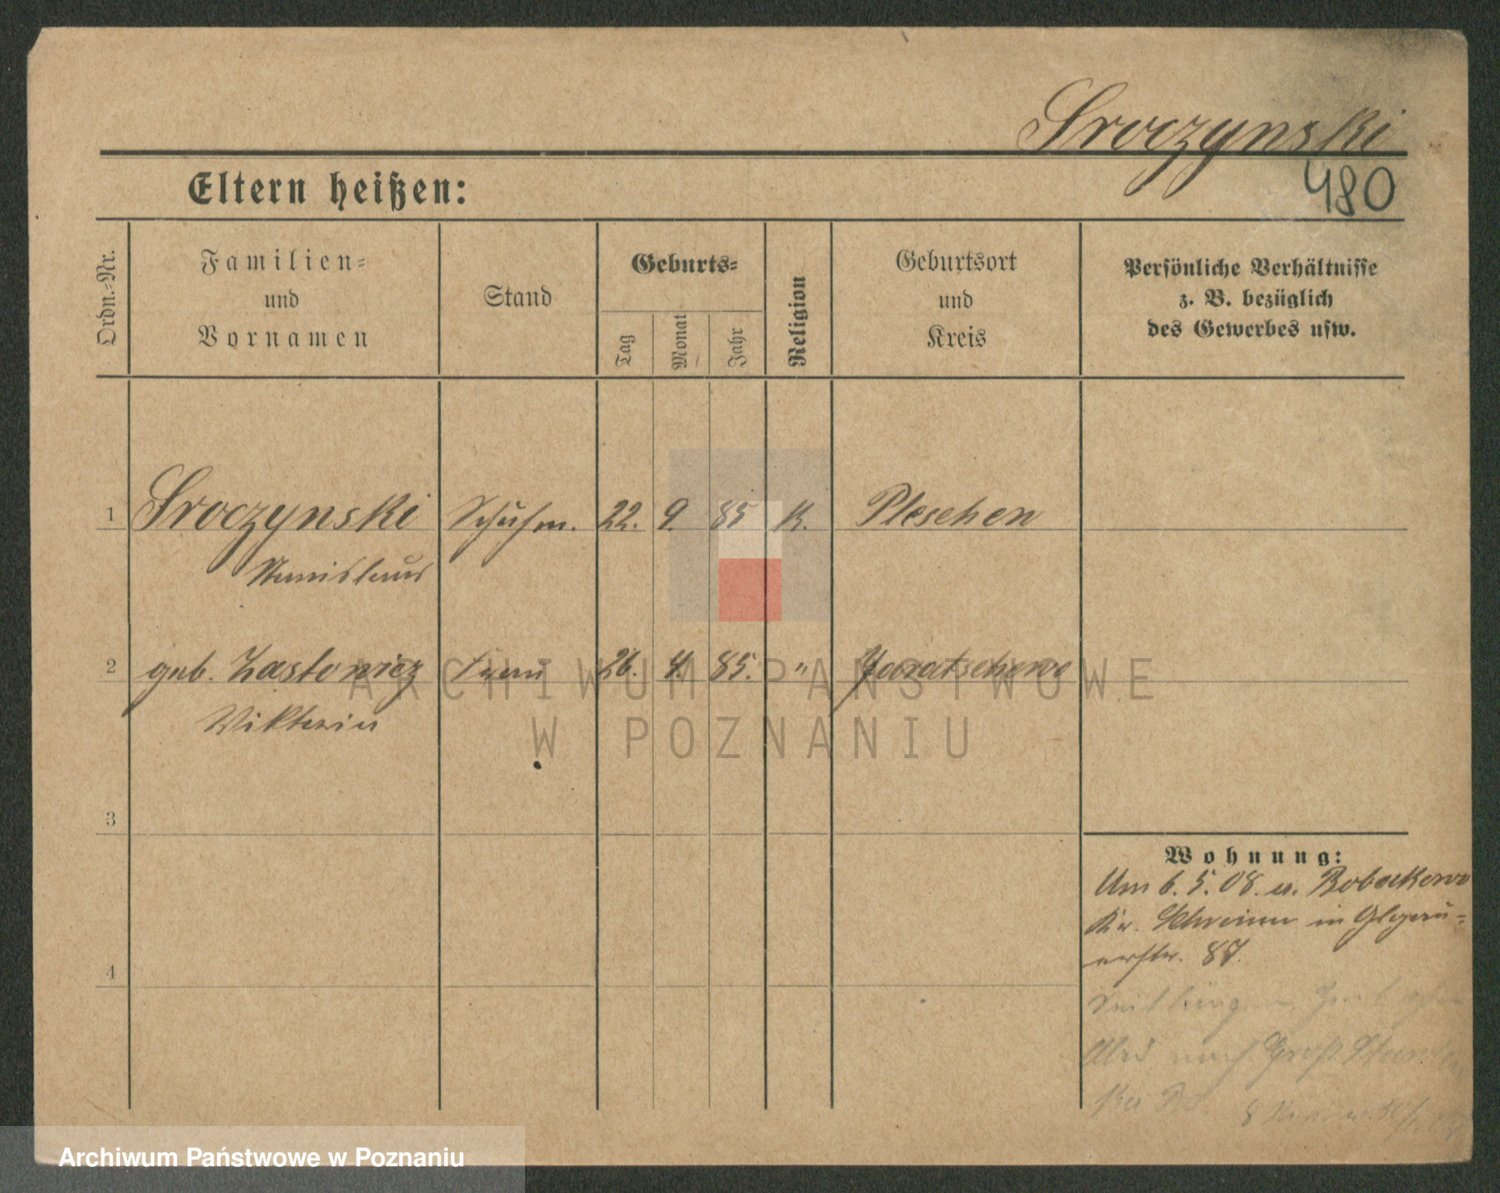 Sroczynski
Eltern heißen:
480
Ordn.-Nr.
Familien-
und
Vornamen
Stand
Geburts-
Tag
Monat
Jahr
Religion
Geburtsort
und
Kreis
Persönliche Verhältnisse
z. B. bezüglich
des Gewerbes usw.
1 Sroczynski Schuhm. 22. 9. 85 K. Pleschen
Stanislaus
2 geb. Zastowicz Frau 26. 4. 85. " Jaratschewo
Viktoria
3
4
Wohnung:
Um 6. 5. 08. u. Bobolkowo
Kr. Schrimm in Glogau-
erstr. 87.
nach Groß
ARCHIWUM PAŃSTWOWE
W POZNANIU
Archiwum Państwowe w Poznaniu